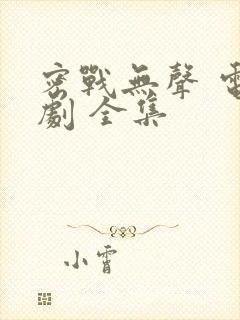 密戰無聲 電
劇 全集
小霄